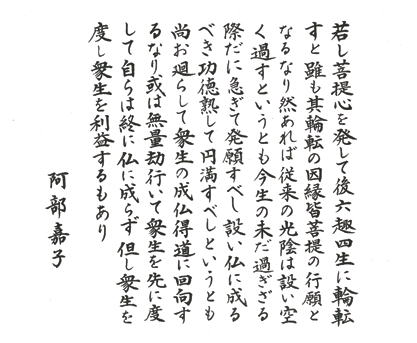 若し菩提心を発して後六趣四生に輪転
すと雖も其輪転の因縁皆菩提の行願と
なるなり然あれば従来の光陰は設い空
く過すというとも今生の未だ過ぎざる
際だに急ぎて発願すべし設い仏に成る
べき功徳熟して円満すべしというとも
尚お廻らして衆生の成仏得道に回向す
るなり或は無量劫行いて衆生を先に度
して自らは終に仏に成らず但し衆生を
度し衆生を利益するもあり
阿部嘉子